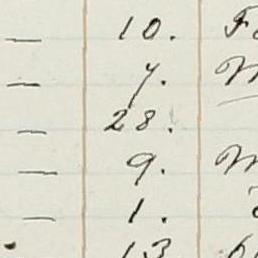 — 10. F
— 7. M
— 28.
— 9. M
— 1.
13